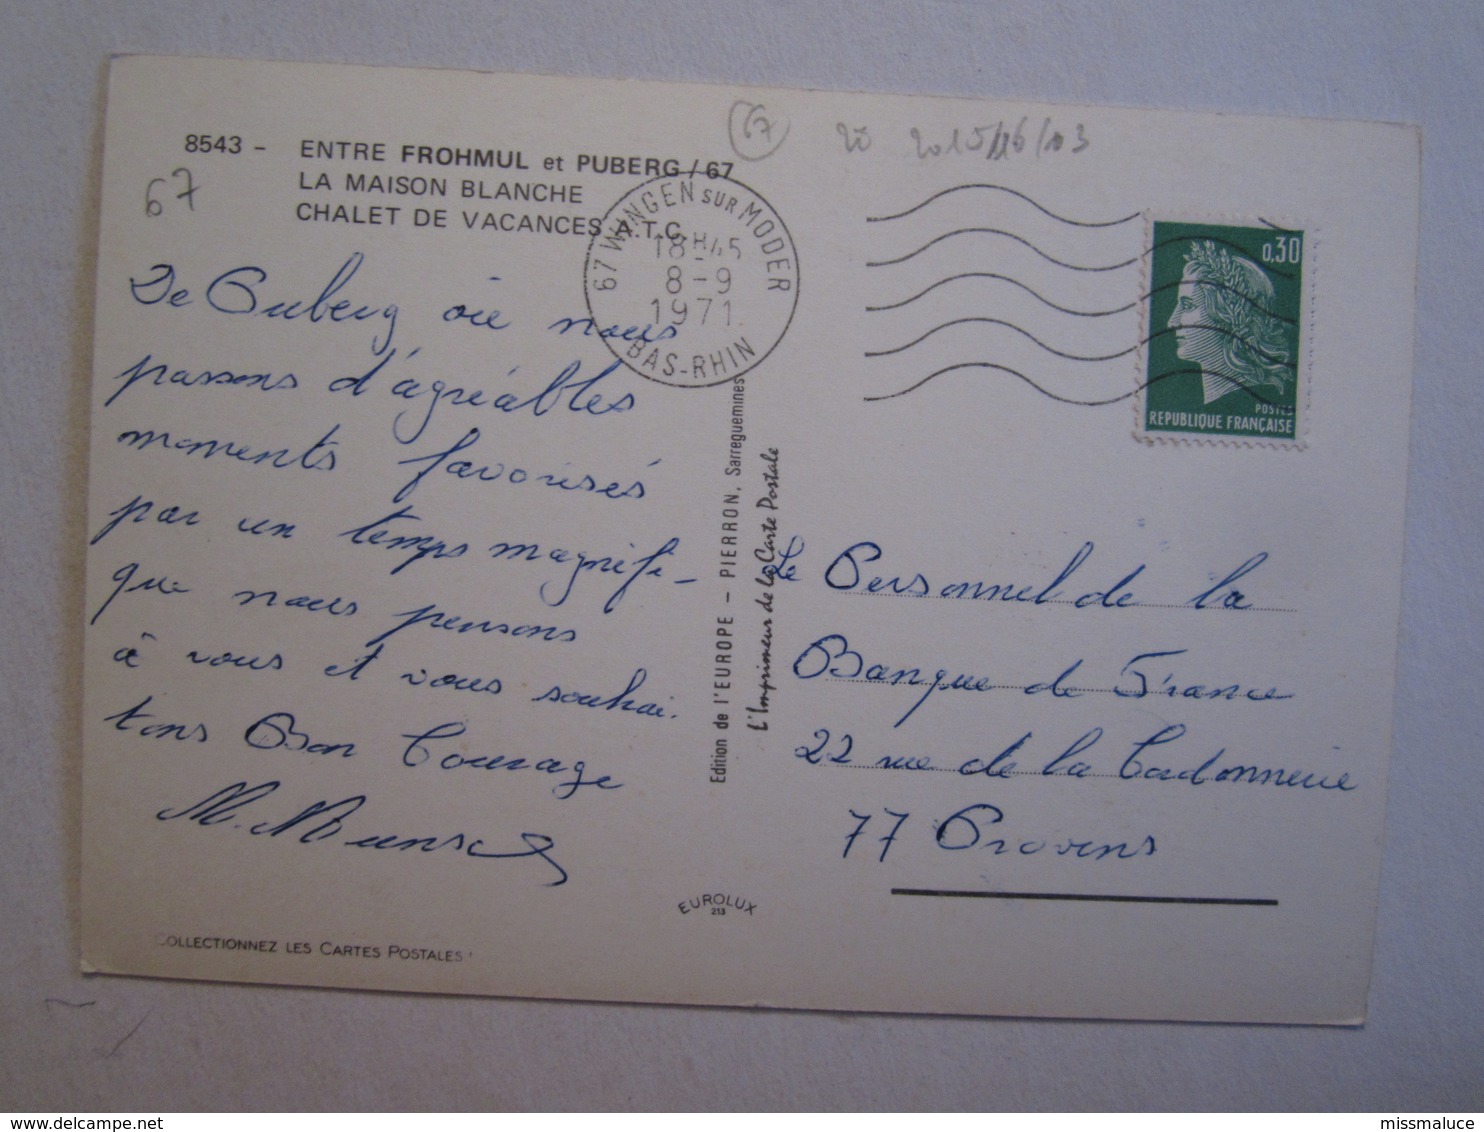 67
20 2015/16/03
8543 - ENTRE FROHMUL et PUBERG / 67
LA MAISON BLANCHE
CHALET DE VACANCES A.T.C.
67
67 WINGEN SUR MODER
18H45
8-9
1971
BAS-RHIN
0,30
POSTES
REPUBLIQUE FRANÇAISE
De Puberg où nous
passons d'agréables
moments favorisés
par un temps magnifi-
que nous pensons
à vous et vous souhai-
tons Bon Courage
Edition de l'EUROPE - PIERRON, Sarreguemines
L'Imprimeur de la Carte Postale
Le Personnel de la
Banque de France
22 rue de la Cordonnerie
77 Provins
EUROLUX
213
COLLECTIONNEZ LES CARTES POSTALES
delcampe.net
missmaluce